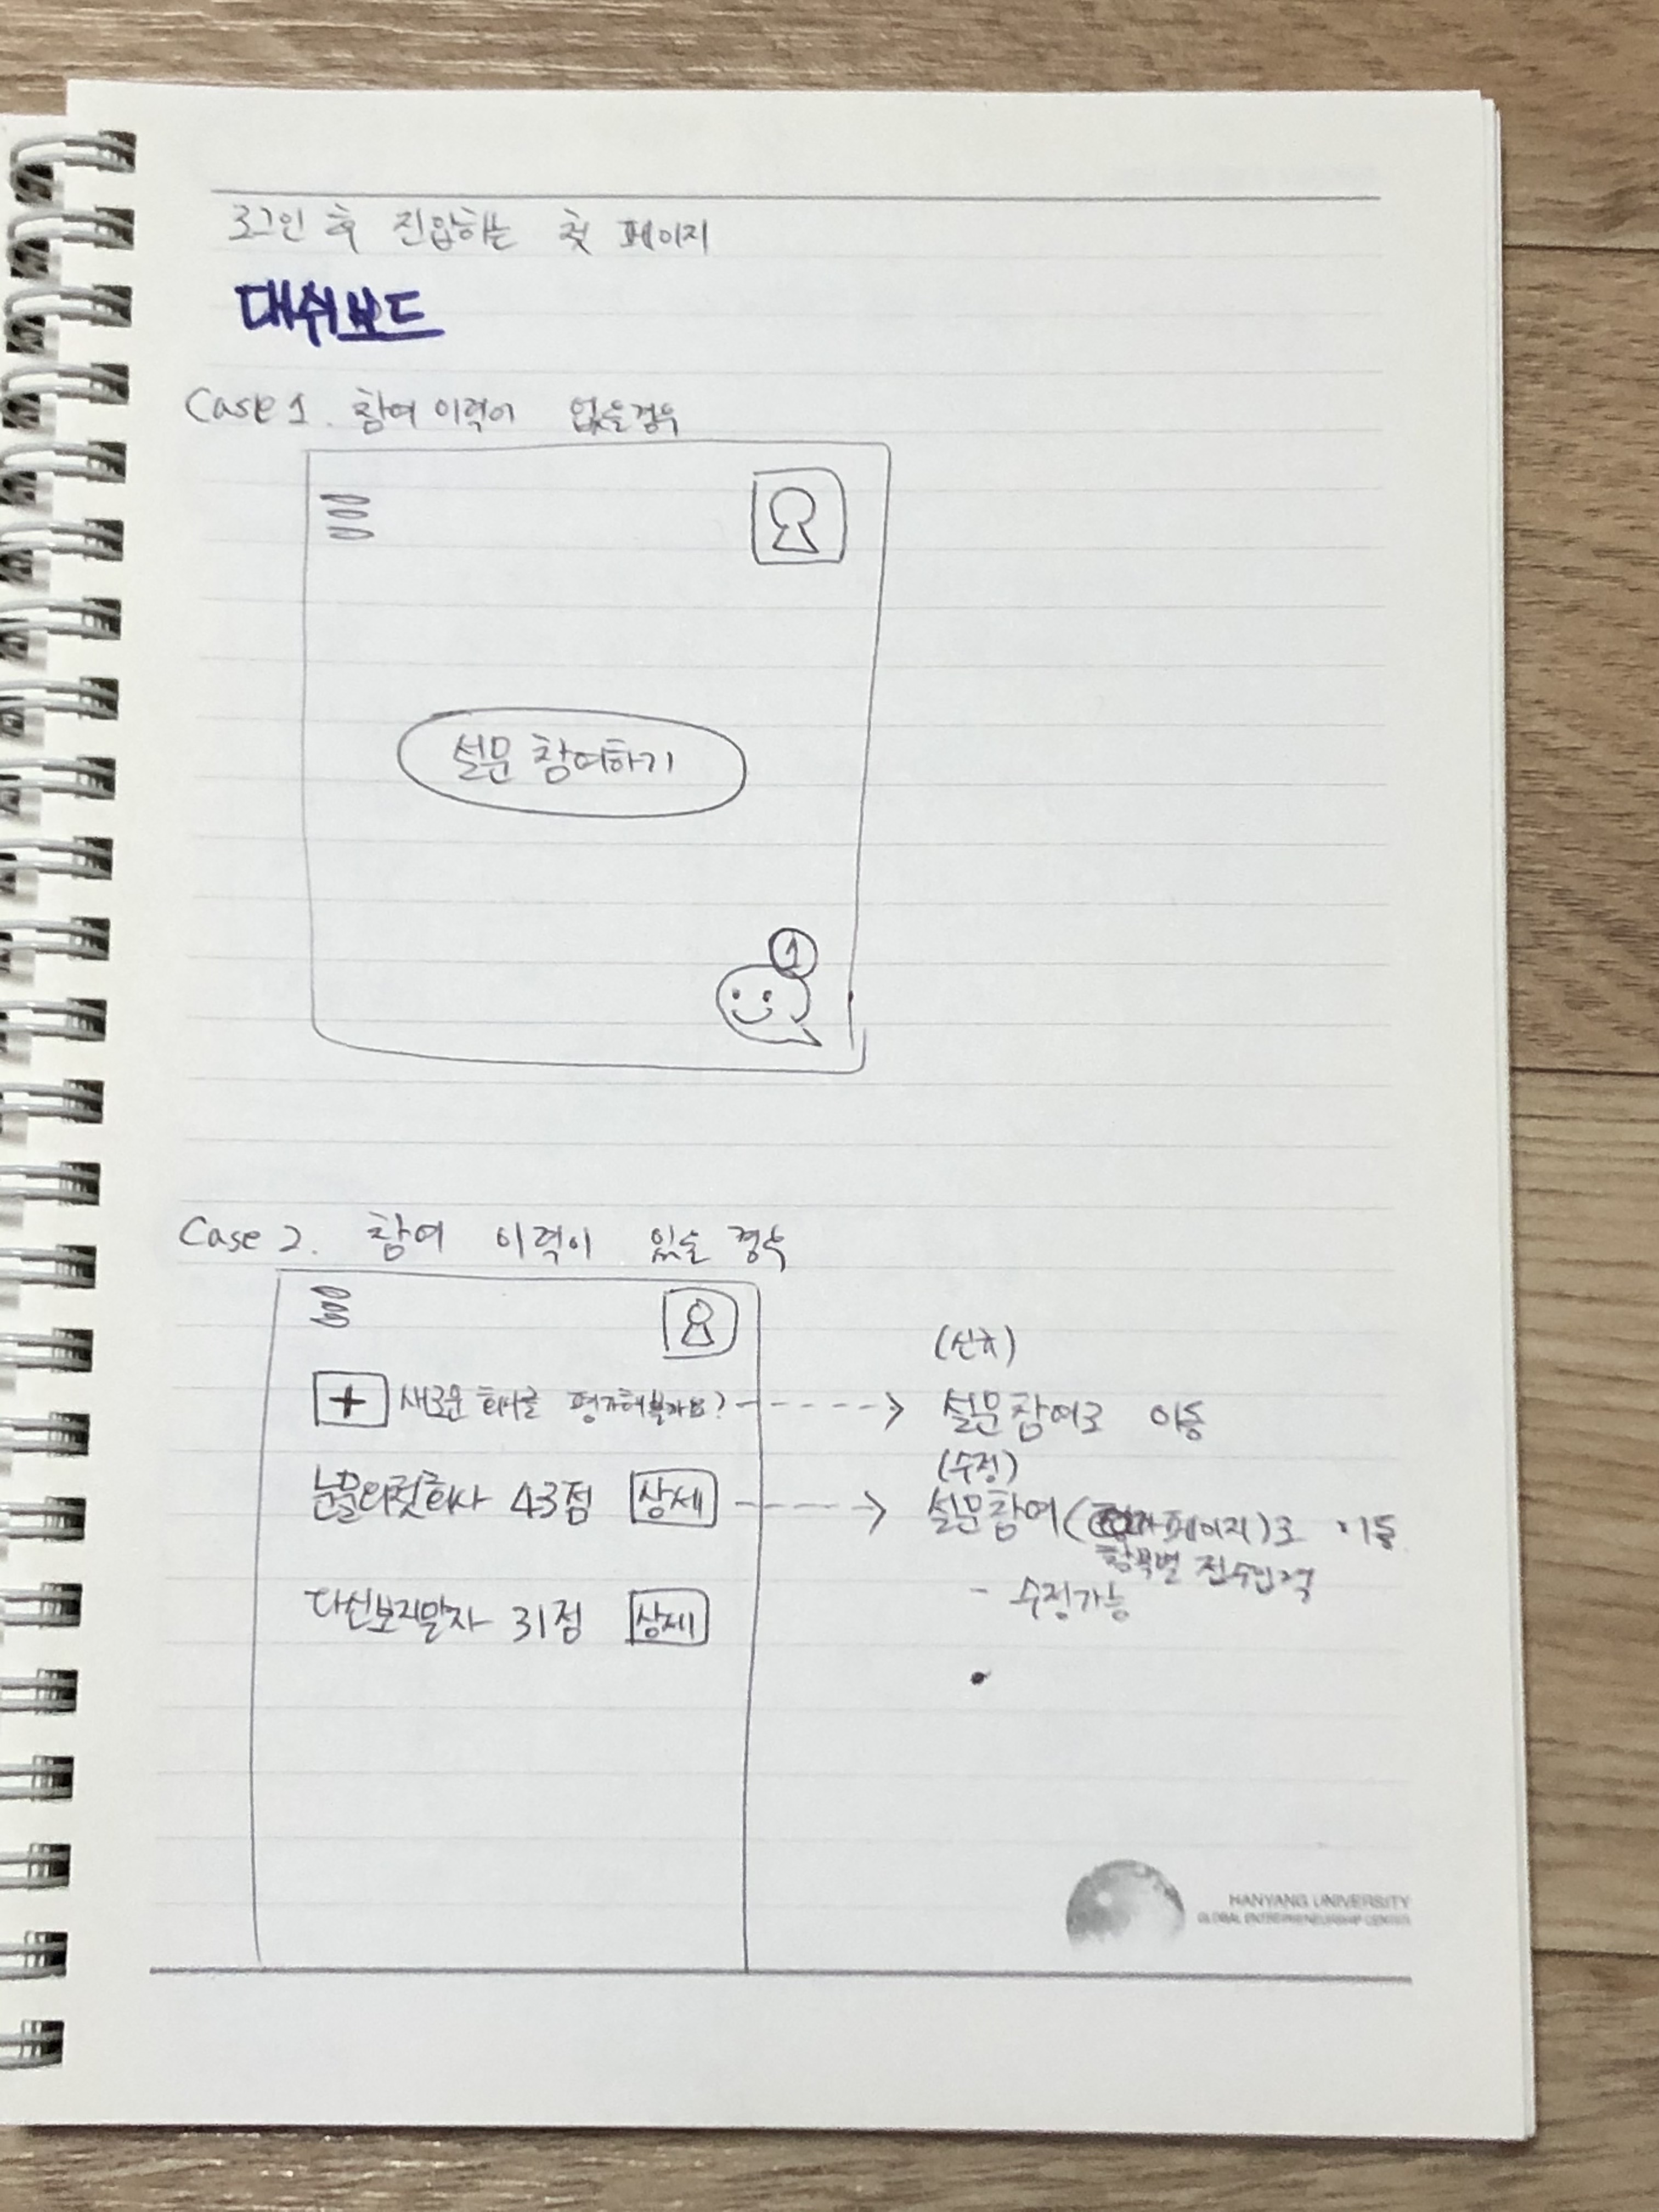 로그인 후 진입하는 첫 페이지
대쉬보드
Case 1. 참여 이력이 없을 경우
설문 참여하기
1
Case 2. 참여 이력이 있을 경우
(신규)
+ 새로운 회사를 평가해볼까요? 설문참여로 이동
(수정)
눈물의첫회사 43점 상세 설문참여( 페이지)로 이동
항목별 점수입력
- 수정가능
다신보지말자 31점 상세
HANYANG UNIVERSITY
GLOBAL ENTREPRENEURSHIP CENTER